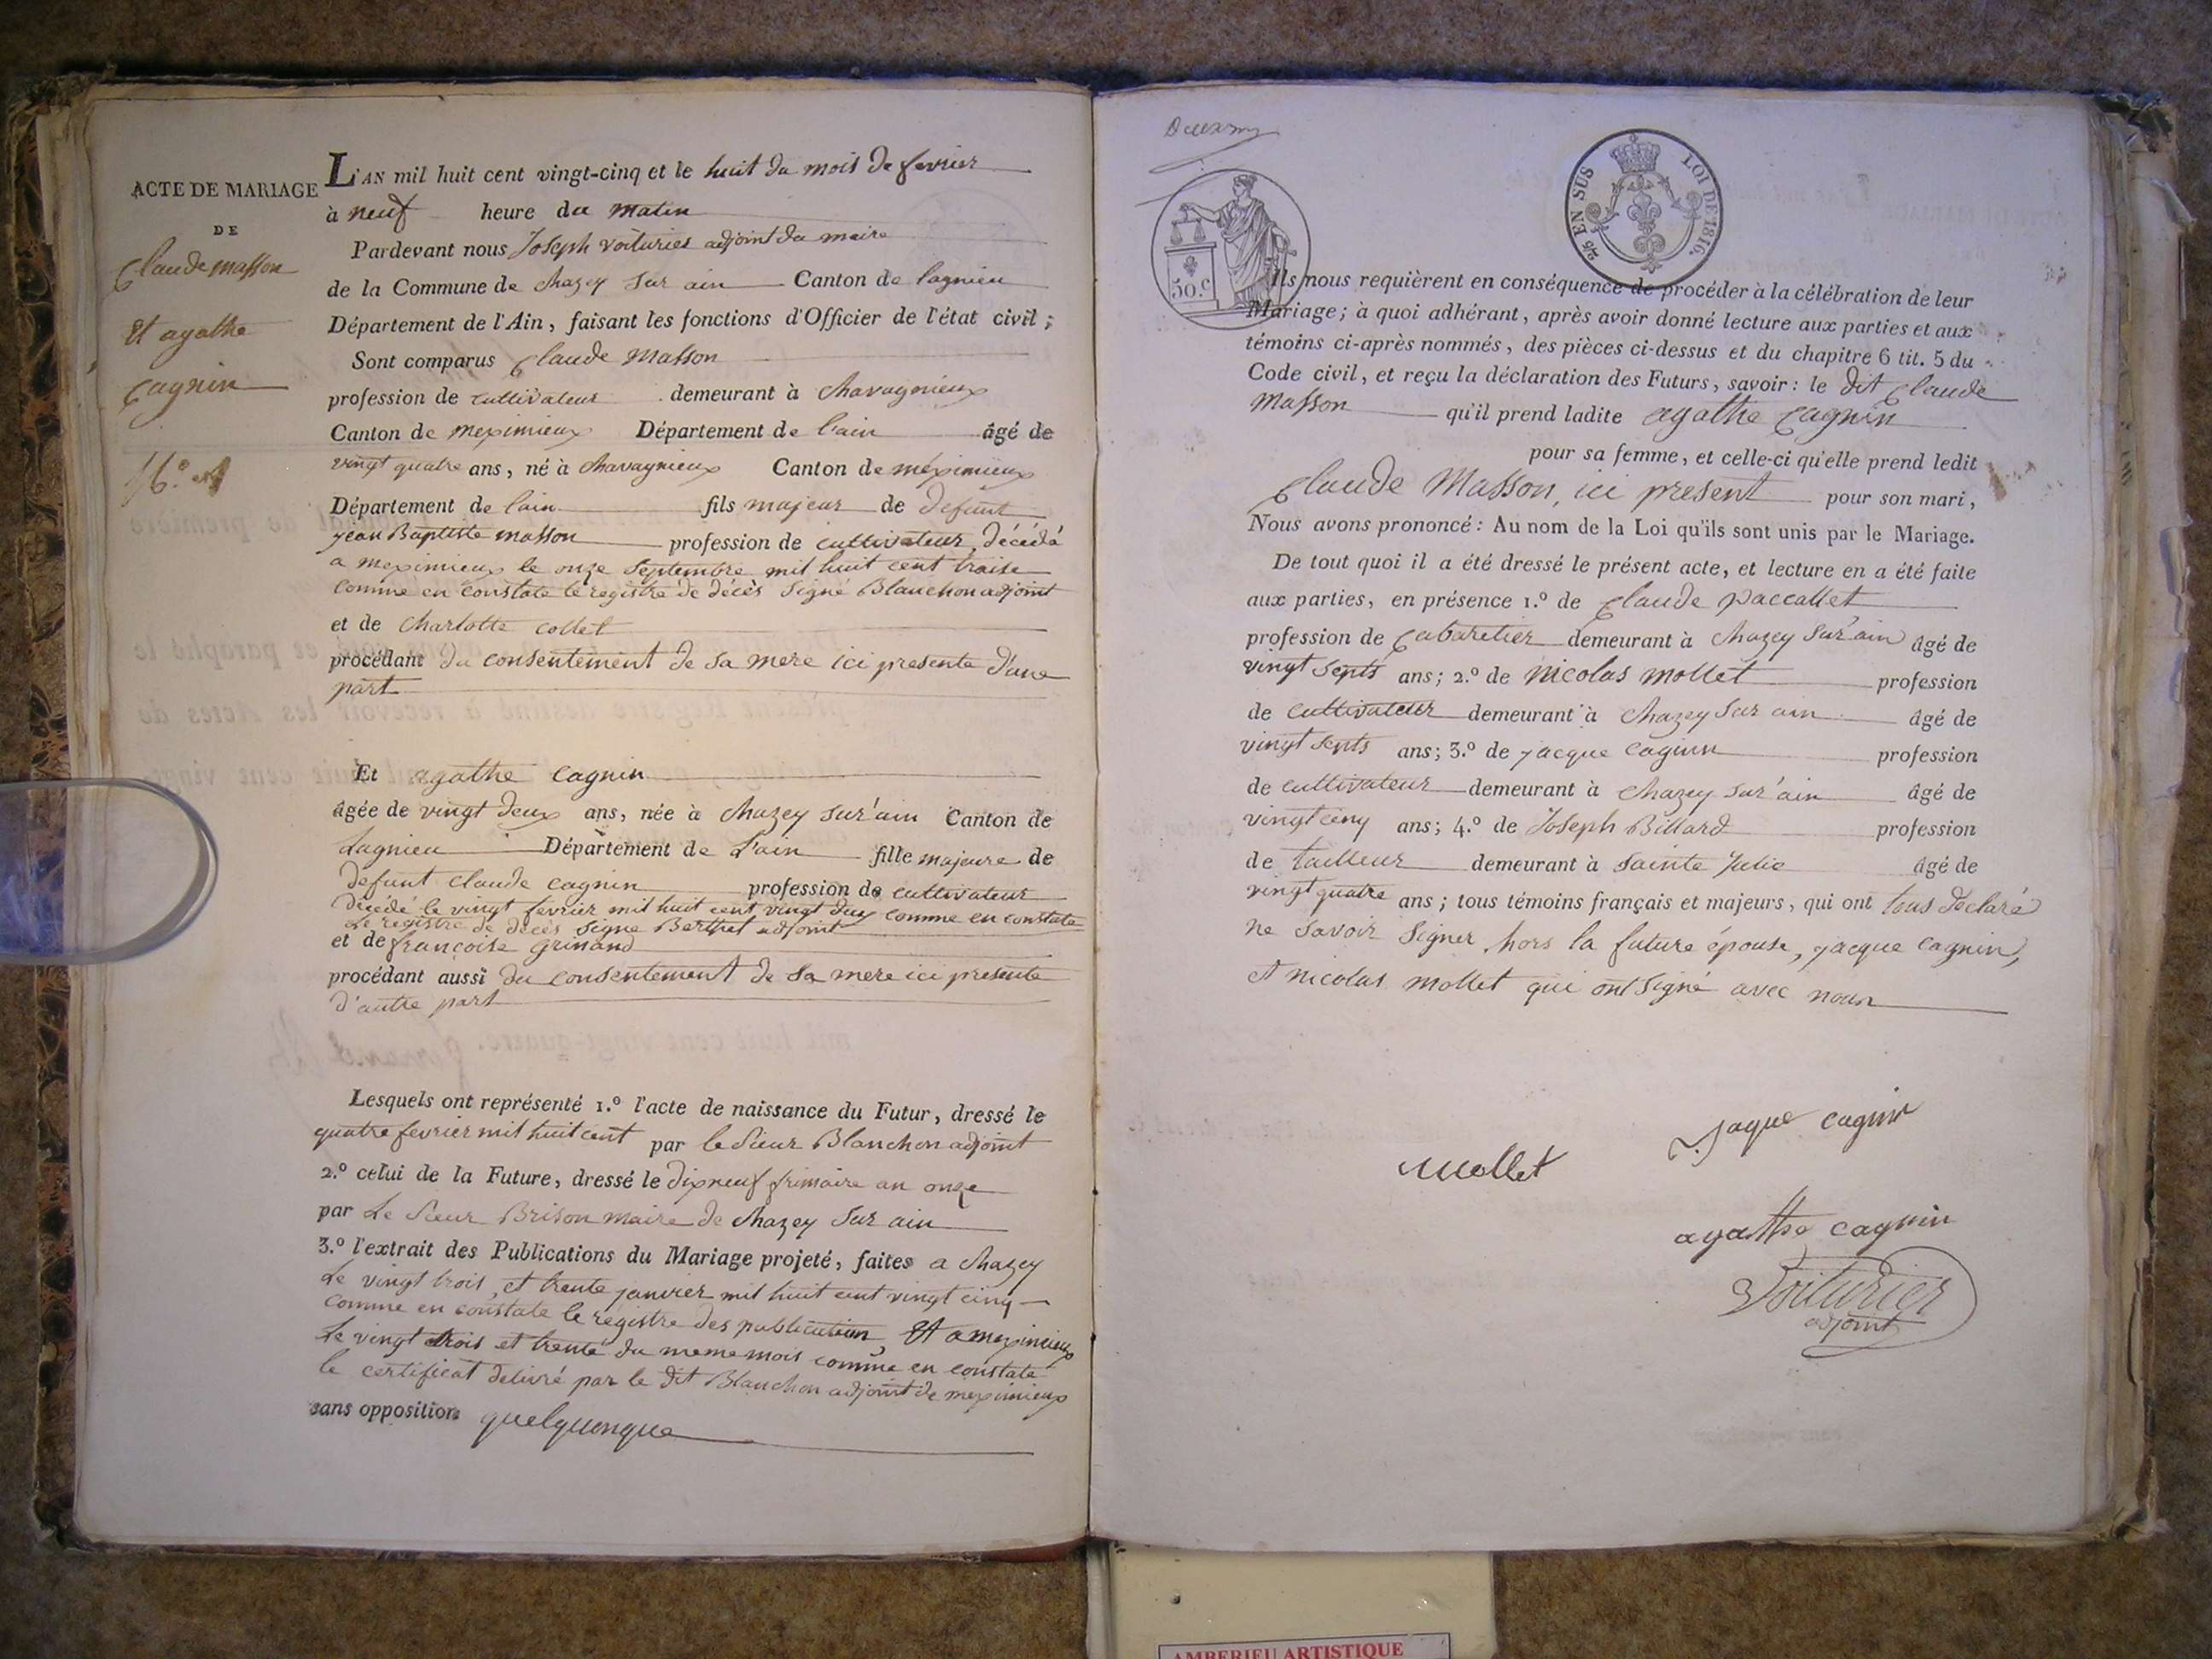 ACTE DE MARIAGE
DE
Claude Masson
Et agathe
Cagnin
L'AN mil huit cent vingt-cinq et le huit du mois de fevrier
à neuf heure du matin
Pardevant nous Joseph voiturier adjoint du maire
de la Commune de chazey sur ain Canton de lagnieu
Département de l'Ain, faisant les fonctions d'Officier de l'état civil;
Sont comparus Claude Masson
profession de cultivateur demeurant à chavagnieux
Canton de meximieux Département de l'ain âgé de
vingt quatre ans, né à chavagnieux Canton de méximieux
Département de lain fils majeur de defunt
jean Baptiste masson profession de cultivateur, décédé
a meximieux le onze septembre mil huit cent traise
comme en constate le registre de décès signé Blanchon adjoint
et de Charlotte collet
procédant du consentement de sa mere ici presente d'une
part
Et agathe cagnin
âgée de vingt deux ans, née à chazey sur'ain Canton de
Lagnieu Département de L'ain fille majeure de
defunt claude cagnin profession de cultivateur
décédé le vingt fevrier mil huit cent vingt deux comme en constate
le registre de décès signe Berthet adjoint
et de françoise grinand
procédant aussi du consentement de sa mere ici presente
d'autre part
Lesquels ont représenté 1.º l'acte de naissance du Futur, dressé le
quatre fevrier mil huit cent par le sieur Blanchon adjoint
2.º celui de la Future, dressé le dixneuf frimaire an onze
par Le sieur Brison maire de chazey sur ain
3.º l'extrait des Publications du Mariage projeté, faites a chazey
Le vingt trois, et trente janvier mil huit cent vingt cinq
comme en constate le registre des publication, Et a meximieux
Le vingt trois et trente du meme mois comme en constate
le certificat delivré par le dit Blanchon adjoint de meximieux
sans opposition quelquonque
50.c
2/5 EN SUS
LOI DE 1816.
Ils nous requièrent en conséquence de procéder à la célébration de leur
Mariage; à quoi adhérant, après avoir donné lecture aux parties et aux
témoins ci-après nommés, des pièces ci-dessus et du chapitre 6 tit. 5 du
Code civil, et reçu la déclaration des Futurs, savoir: le dit Claude
Masson qu'il prend ladite agathe Cagnin
pour sa femme, et celle-ci qu'elle prend ledit
Claude Masson, ici present pour son mari,
Nous avons prononcé: Au nom de la Loi qu'ils sont unis par le Mariage.
De tout quoi il a été dressé le présent acte, et lecture en a été faite
aux parties, en présence 1.º de Claude paccallet
profession de Cabaretier demeurant à chazey sur'ain âgé de
vingt septs ans; 2.º de nicolas mollet profession
de cultivateur demeurant à chazey sur ain âgé de
vingt septs ans; 3.º de jacque cagnin profession
de cultivateur demeurant à chazey sur'ain âgé de
vingt cinq ans; 4.º de Joseph Billard profession
de tailleur demeurant à sainte julie âgé de
vingt quatre ans; tous témoins français et majeurs, qui ont tous déclaré
ne savoir signer, hors la future épouse, jacque cagnin,
et nicolas mollet qui ont signé avec nous
Jaque cagnin
Mollet
agathe cagnin
Voiturier
adjoint
AMBERIEU ARTISTIQUE